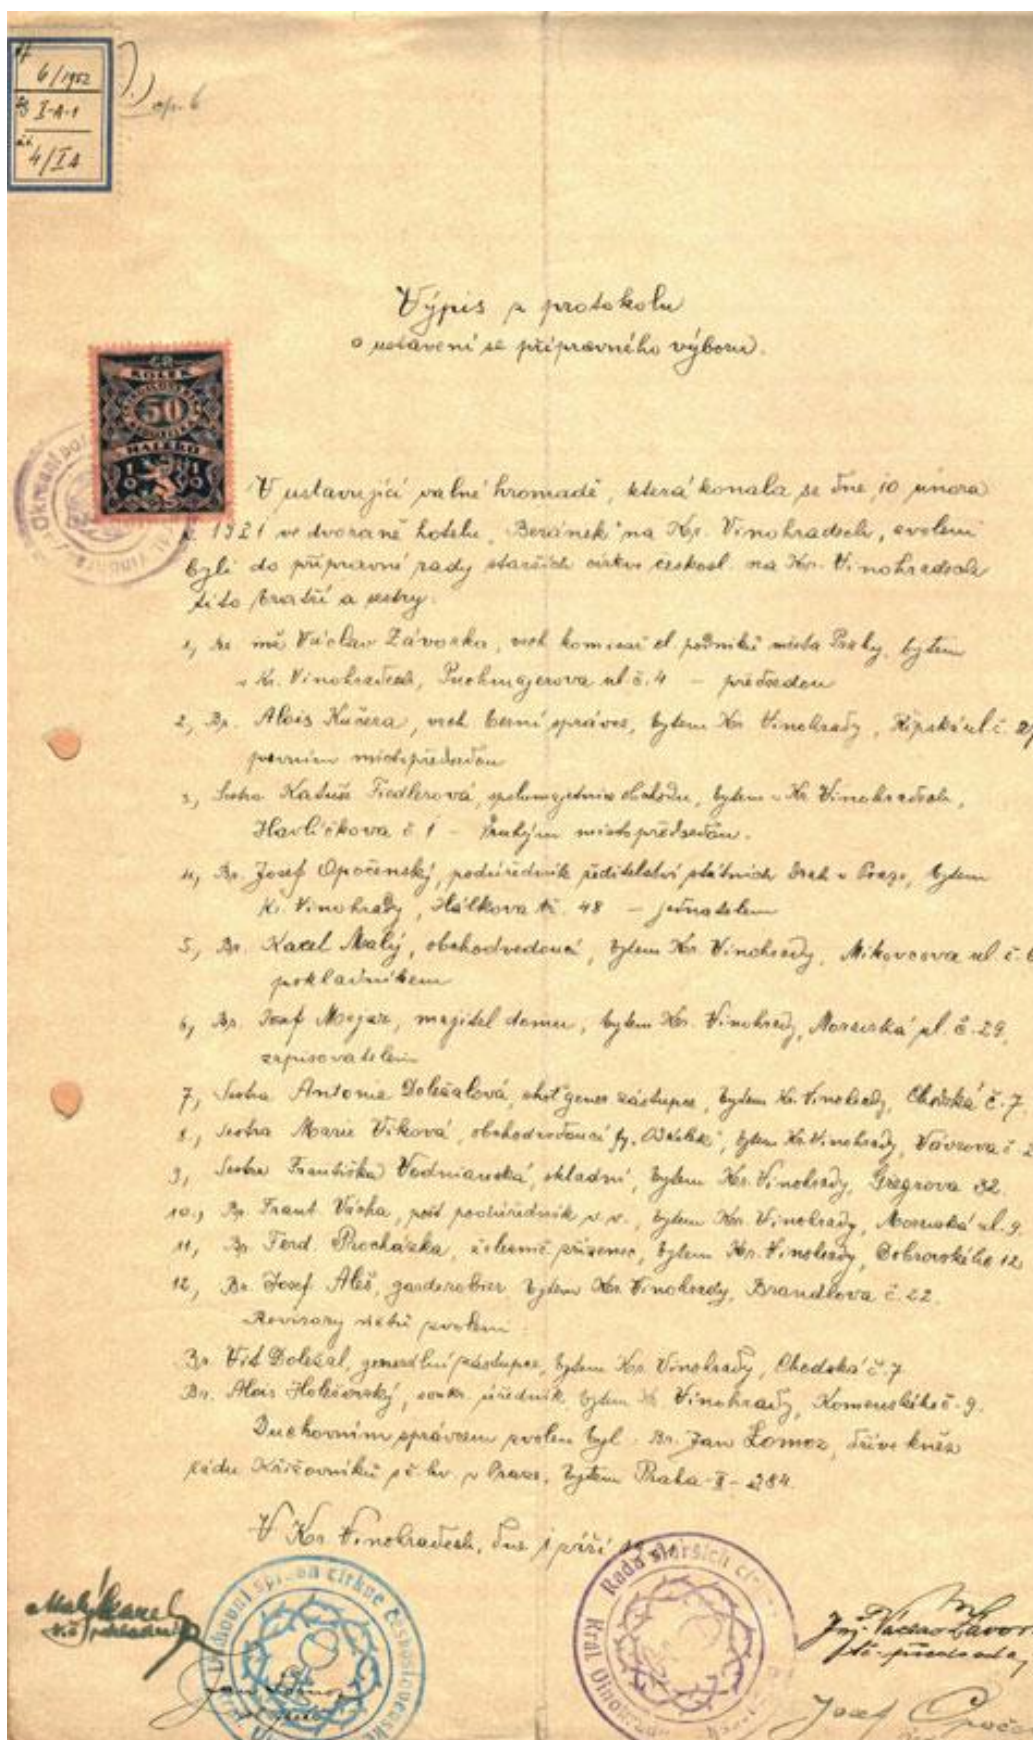 6/1952
I-A-1
4/IA
Výpis z protokolu
o ustavení se přípravného výboru.
KOLEK
50
HALÉŘŮ
1 9 1 9
V ustavující valné hromadě, která konala se dne 10 února
1921 ve dvoraně hotelu „Beránek" na Kr. Vinohradech, zvoleni
byli do přípravné rady starších církve českosl. na Kr. Vinohradech
tito bratři a sestry.
1, Václav Závorka, vrch. komisař el. podniků města Prahy, bytem
v Kr. Vinohradech, Puchmajerova ul č. 4 – předsedou
2, Br. Alois Kučera, vrch. berní správce, bytem Kr. Vinohrady, Řipská ul. č.
prvním místopředsedou
3, Sestra Katuše Fiedlerová, spolumajetnice obchodu, bytem v Kr. Vinohradech,
Havlíčkova č 1 – druhým místopředsedou.
4, Br. Josef Opočenský, podúředník ředitelství státních drah v Praze, bytem
Kr. Vinohrady, Hálkova tř. 48 – jednatelem
5, Br. Karel Malý, obchodvedoucí, bytem Kr. Vinohrady, Mikovcova ul. č.
pokladníkem
6, Br. Josef majitel domu, bytem Kr. Vinohrady, Moravská ul. č. 29,
zapisovatelem
7, Sestra Antonie Doležalová, choť gener zástupce, bytem Kr. Vinohrady, Chodská č. 7
8, Sestra Marie Vlková, obchodvedoucí fy. bytem Kr. Vinohrady, Vávrova č
9, Sestra Františka Vodnianská, skladní, bytem Kr. Vinohrady, Grégrova 32.
10., Br. Frant. Vácha, pošt podúředník v.v., bytem Kr. Vinohrady, Moravská ul. 9.
11, Br. Ferd. Procházka, bytem Kr. Vinohrady, Dobrovského 12
12, Br. Josef Aleš, garderobier, bytem Kr. Vinohrady, Brandlova č. 22.
Revisory účtů zvoleni
Br. Vít Doležal, generální zástupce, bytem Kr. Vinohrady, Chodská č. 7
Br. Alois Holešovský, soukr. úředník, bytem Kr. Vinohrady, Komenského č. 9.
Duchovním správcem zvolen byl Br. Jan Lomoz, dříve kněz
řádu Křižovníků s č. hv. v Praze, bytem Praha-II-284.
V Kr. Vinohradech, dne 1 září
Malý Karel
pokladník
Duchovní církve československé
Rada starších
Král. Vinohrady
Ing. Václav Závor
předseda
Josef Opoče